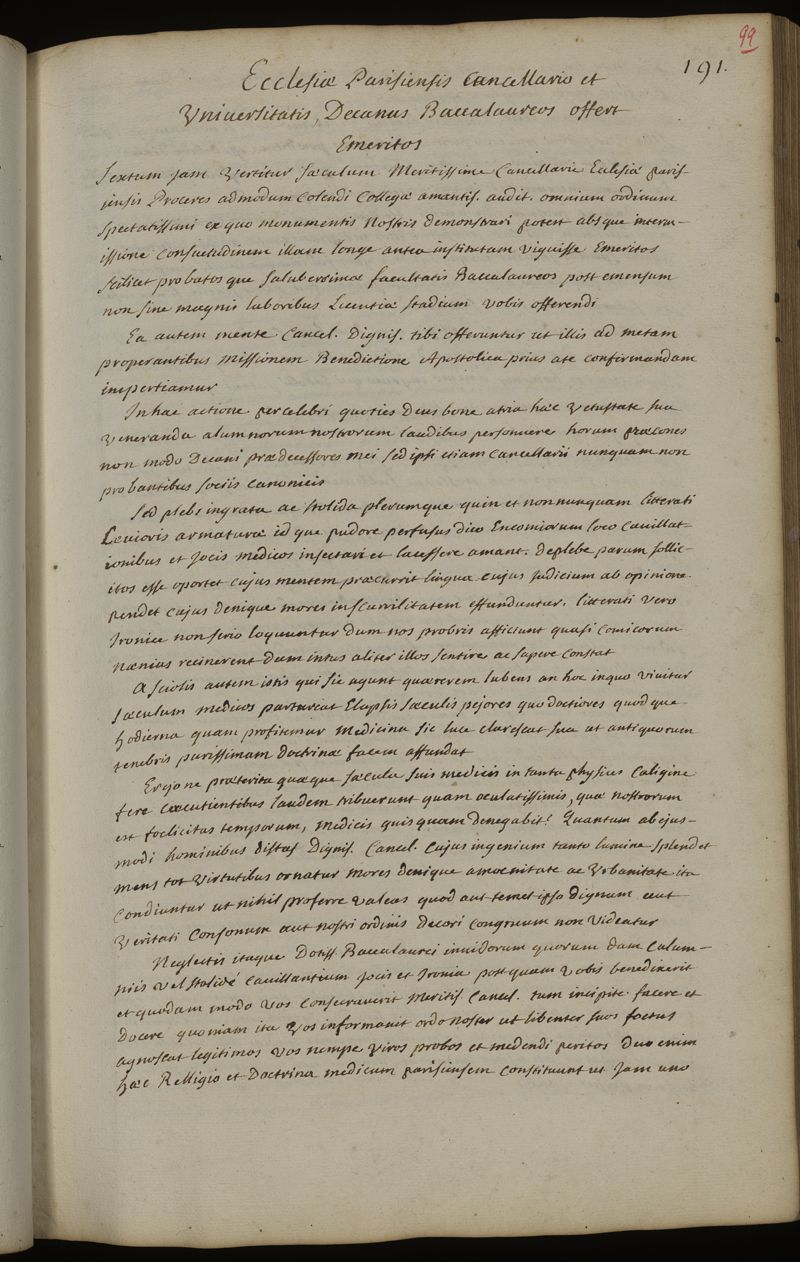 99
191.
Ecclesiæ Parisiensis Cancellario et
Vniuersitatis, Decanus Baccalaureos offert
Emeritos
Sextum jam Vertitur sæculum Meritissime Cancellarie Ecclesiæ paris-
iensis Proceres admodum Colendi Collegæ amantis. audit. omnium ordinum
Spectatissimi ex quo monumentis Nostris demonstrari potest absque interm-
issione Consuetudinem illam longe antea institutam viguisse Emeritos
Scilicet probatosque Saluberrimæ facultatis Baccalaureos post emensum
non sine magnis laboribus Licentiæ stadium vobis offerendi
Ea autem mente Cancel. Dignis. tibi offeruntur ut illis ad metam
properantibus Missionem Benedictione Apostolica prius a te confirmandam
impertiamur
In hac actione percelebri quoties Deus bone atria hæc Vetustate sua
Veneranda alumnorum nostrorum laudibus personuere horum præcones
non modo Decani prædecessores mei sed ipsi etiam Cancellarii nunquam non
probantibus sociis canonicis
Sed plebs ingrata ac stolida plerumque quin et nonnunquam litterati
Levioris armaturæ id que pudore perfusus dico Encomiorum loco Cauillat-
ionibus et jocis medicos insectari et lacessere amant. De plebe parum sollic-
itos esse oportet Cujus mentem præcurrit lingua cujus judicium ab opinione
pendet cujus denique mores in scurrilitatem effunduntur. litterati vero
Ironice non serio loquuntur dum nos probris afficiunt quasi Comicorum
Nænias recinerent dum intus aliter illos sentire ac sapere constat
A sciolis autem istis qui sic agunt quærerem lubens an hoc in quo viuitur
sæculum medicos parturiat Elapsis sæculis pejores quo doctiores quod que
hodierna quam profitemur Medicina sic luce clarescat sua ut antiquorum
tenebris purissimam doctrinæ facem affundat
Ergo ne præterita quæque sæcula suis medicis in tanta physices Caligine
fere cæcutientibus laudem tribuerunt quam oculatissimis, quæ nostrorum
est foelicitas temporum, medicis quisquam denegabit! Quantum ab ejus-
modi hominibus distas Dignis. Cancel. Cujus ingenium tanto lumine splendet
mens tot virtutibus ornatur mores denique amoenitate ac Vrbanitate ita
Condiuntur ut nihil proferre valeas quod aut temet ipso dignum aut
Veritati Consonum aut nostri ordinis decori congruum non Videatur
Neglectis itaque Dotiss Baccalaurei inuidorum quorumdam Calum-
niis vel stolidé Cauillantium jocis et Ironia postquam vobis benedixerit
et quodam modo vos Consecraverit Meritis. Cancel. tum incipite facere et
docere quoniam ita Vos informauit ordo noster ut libenter suos foetus
agnoscat legitimos vos nempe viros probos et medendi peritos Duo enim
hæc Relligio et Doctrina medicum parisiensem Constituunt ut jam uno